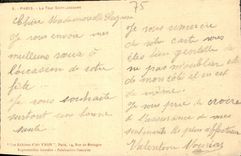 5 - PARIS. - La Tour Saint-Jacques
75
Chère Mademoiselle
Je vous envoie mes
meilleurs vœux à
l'occasion de votre
fête
Je vous souhaite
surtout une bonne
santé
Je vous remercie
de votre carte vous
êtes bien gentille de
ne pas m'oublier et
de mon côté il en est
de même.
Je vous prie de croire
à l'assurance de mes
sentiments les plus affectueux
Valentine
"Les Editions d'Art YVON", Paris, 14, Rue de Bretagne
Reproduction interdite - Fabrication Française